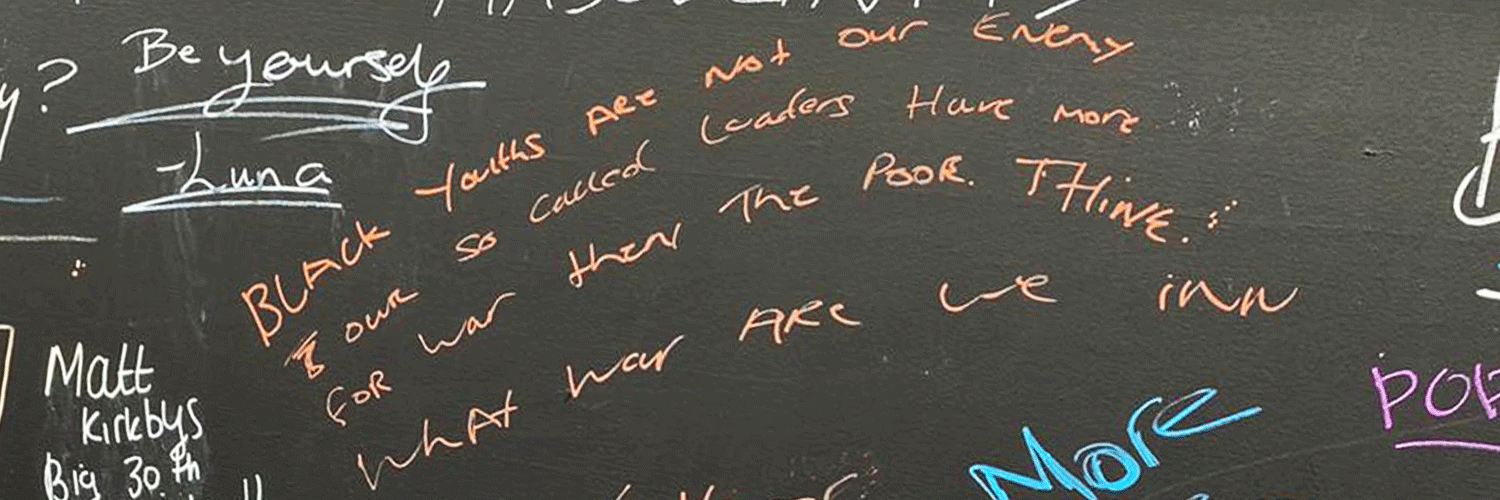 Be yourself
-Luna
BLACK Youths ARE Not our Enemy
& our so called Leaders Have more
FOR war then The POOR. THiNK.
WhAt war ARE we inn
Matt
Kirkbys
Big 30th
More